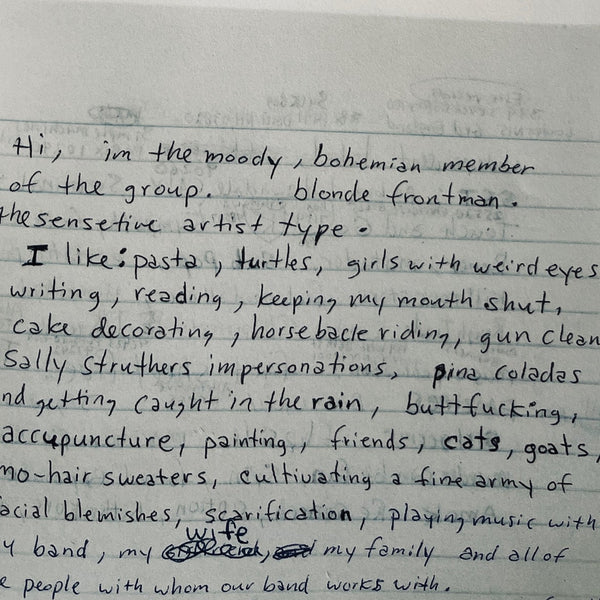 Hi, im the moody, bohemian member
of the group. blonde frontman.
the sensetive artist type.
I like: pasta, turtles, girls with weird eyes
writing, reading, keeping my mouth shut,
cake decorating, horseback riding, gun clean
Sally struthers impersonations, pina coladas
nd getting caught in the rain, buttfucking,
accupuncture, painting, friends, cats, goats,
mo-hair sweaters, cultivating a fine army of
acial blemishes, scarification, playing music with
y band, my wife my family and all of
e people with whom our band works with.